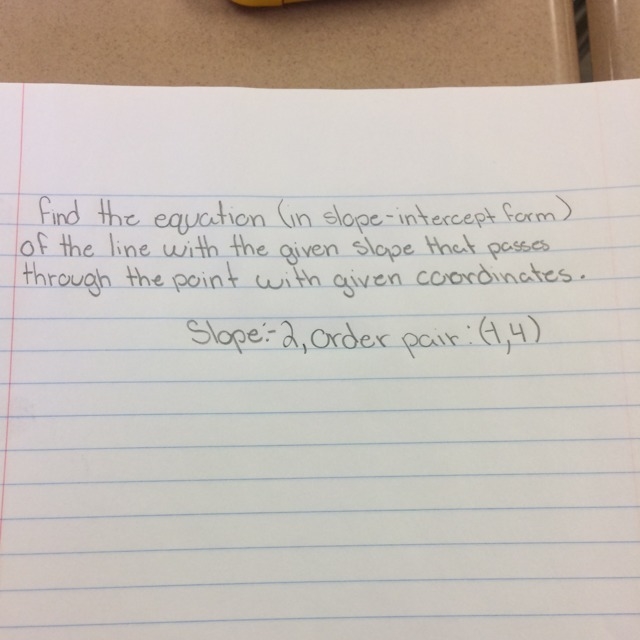 find the equation (in slope-intercept form)
of the line with the given slope that passes
through the point with given coordinates.
Slope:-2, order pair: (-1,4)